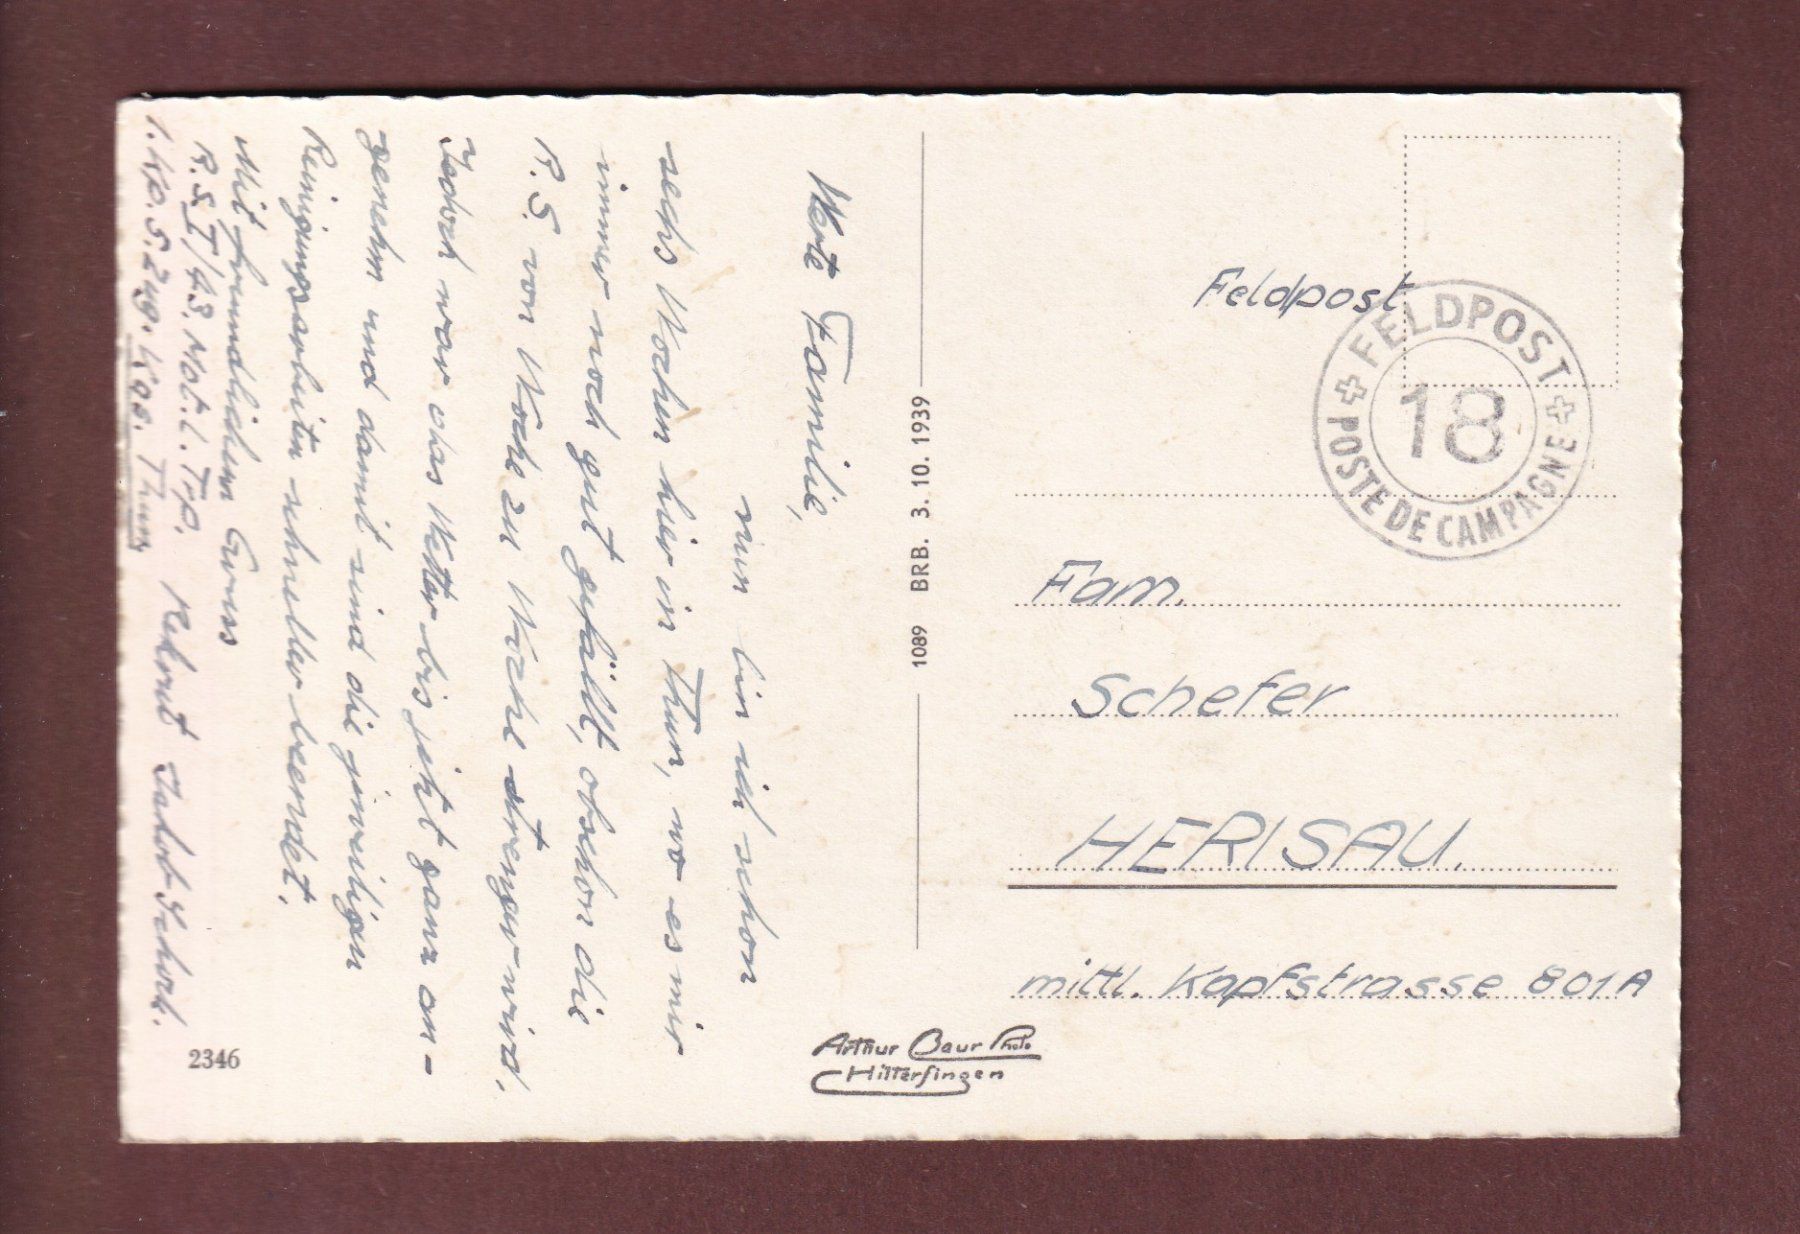 Werte Familie,
nun bin ich schon
sechs Wochen hier in Thun, wo es mir
immer noch gut gefällt, obschon die
R.S. von Woche zu Woche strenger wird.
Jedoch war das Wetter bis jetzt ganz an-
genehm und damit sind die jeweiligen
Reinigungsarbeiten schneller beendet.
Mit freundlichem Gruss
R.S. I/43. Mot. l. Trp.
1. Kp. 5. Zug. Kas. Thun
Rekrut Jakob Schoch.
2346
1089 BRB. 3. 10. 1939
Arthur Baur Photo
Hilterfingen
Feldpost
FELDPOST
18
POSTE DE CAMPAGNE
Fam.
Schefer
HERISAU.
mittl. Kapfstrasse 801A